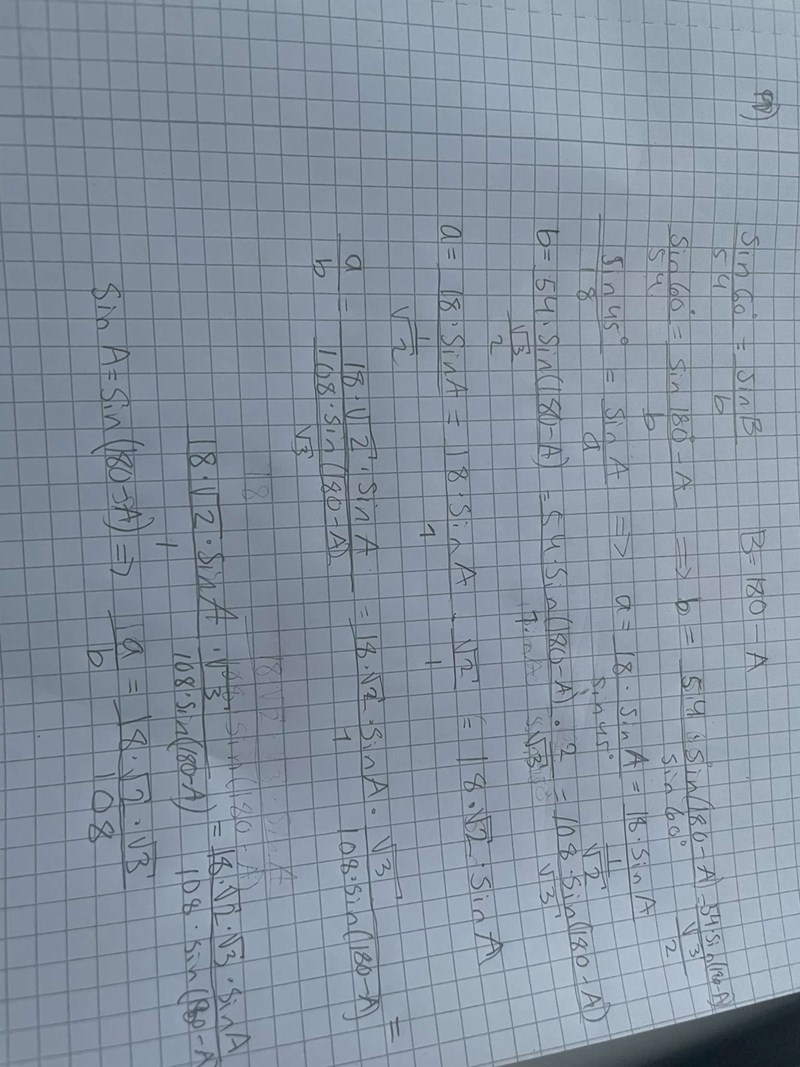 sin 60° / 54 = sin B / b     B = 180 - A
sin 60° / 54 = sin 180° - A / b => b = 54 · sin(180 - A) / sin 60° = 54 sin(180 - A) / (√3 / 2)
sin 45° / 18 = sin A / a => a = 18 · sin A / sin 45° = 18 · sin A / (1 / √2)
b = 54 · sin(180 - A) / (√3 / 2) = 54 · sin(180 - A) / 1 · 2 / √3 = 108 · sin(180 - A) / √3
a = 18 · sin A / (1 / √2) = 18 · sin A / 1 · √2 / 1 = 18 · √2 · sin A
a / b = 18 · √2 · sin A / (108 · sin(180 - A) / √3) = 18 · √2 · sin A / 1 · √3 / 108 · sin(180 - A) =
18 · √2 · sin A / 1 · √3 / 108 · sin(180 - A) = 18 · √2 · √3 · sin A / 108 · sin(180 - A
sin A = sin(180 - A) => a / b = 18 · √2 · √3 / 108